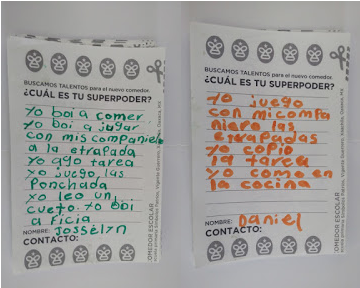 BUSCAMOS TALENTOS para el nuevo comedor.
¿CUÁL ES TU SUPERPODER?
Yo boi a comer.
Yo boi a jugar
con mis companiero
a la etrapada
Yo ago tarea
Yo juego, las
Ponchada
Yo leo un
cueto. Yo boi
a
NOMBRE: Josselyn
CONTACTO:
COMEDOR ESCOLAR
BUSCAMOS TALENTOS para el nuevo comedor.
¿CUÁL ES TU SUPERPODER?
Yo juego
con micompa
niero las
etrapadas
yo copio
la tarea
yo como en
la cocina
NOMBRE: Daniel
CONTACTO:
COMEDOR ESCOLAR